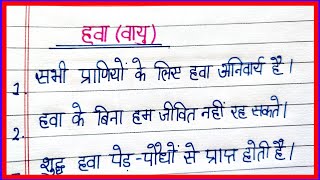 हवा (वायु)
1. सभी प्राणियों के लिए हवा अनिवार्य है।
2. हवा के बिना हम जीवित नहीं रह सकते।
शुद्ध हवा पेड़-पौधों से प्राप्त होती है।